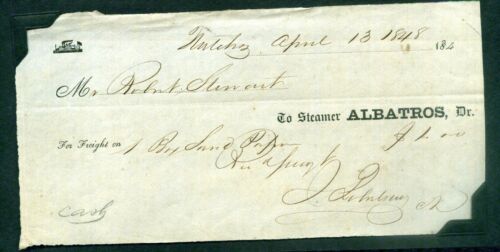 Natchez April 13 1848 184
Mr Robert Stewart
To Steamer ALBATROS, Dr.
For Freight on 1 Box Sand Paper $1.00
Rec'd payt
J.
cash